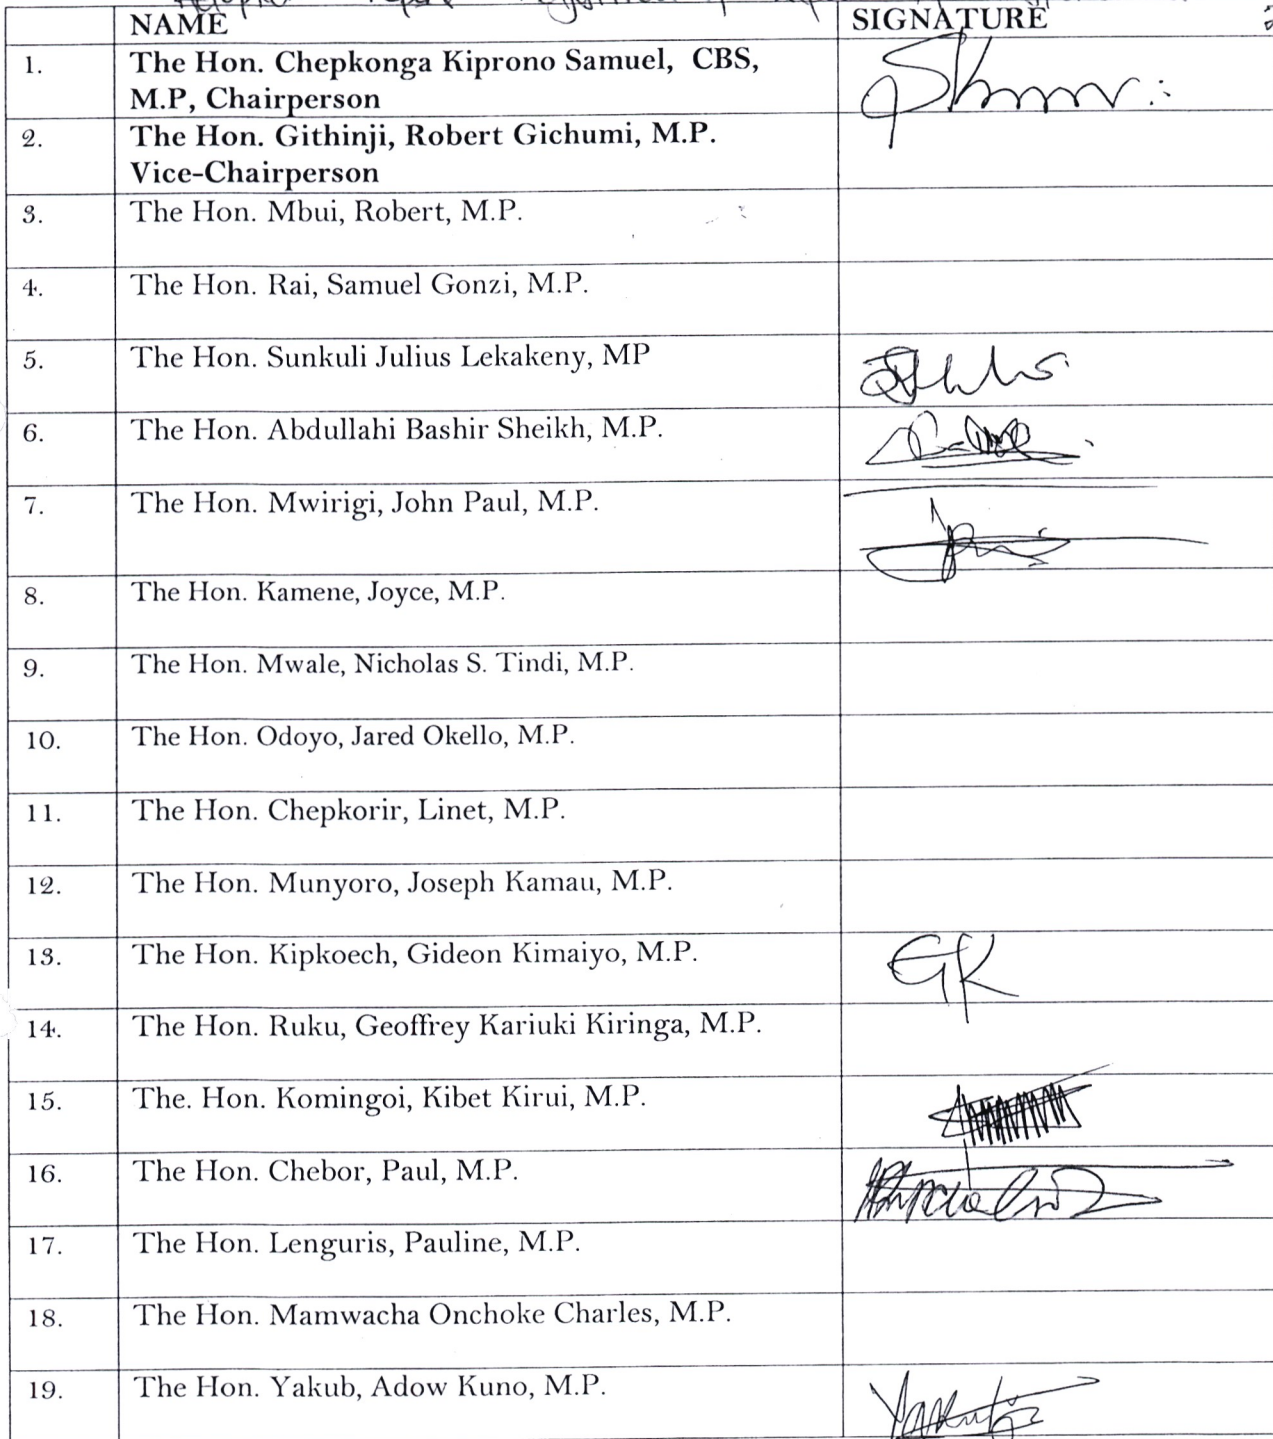 NAME SIGNATURE
1. The Hon. Chepkonga Kiprono Samuel, CBS,
M.P, Chairperson
2. The Hon. Githinji, Robert Gichumi, M.P.
Vice-Chairperson
3. The Hon. Mbui, Robert, M.P.
4. The Hon. Rai, Samuel Gonzi, M.P.
5. The Hon. Sunkuli Julius Lekakeny, MP
6. The Hon. Abdullahi Bashir Sheikh, M.P.
7. The Hon. Mwirigi, John Paul, M.P.
8. The Hon. Kamene, Joyce, M.P.
9. The Hon. Mwale, Nicholas S. Tindi, M.P.
10. The Hon. Odoyo, Jared Okello, M.P.
11. The Hon. Chepkorir, Linet, M.P.
12. The Hon. Munyoro, Joseph Kamau, M.P.
13. The Hon. Kipkoech, Gideon Kimaiyo, M.P. GK
14. The Hon. Ruku, Geoffrey Kariuki Kiringa, M.P.
15. The. Hon. Komingoi, Kibet Kirui, M.P.
16. The Hon. Chebor, Paul, M.P.
17. The Hon. Lenguris, Pauline, M.P.
18. The Hon. Mamwacha Onchoke Charles, M.P.
19. The Hon. Yakub, Adow Kuno, M.P.